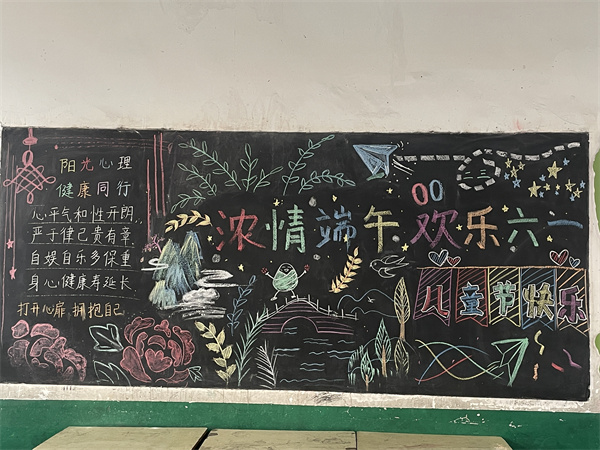 阳光心理
健康同行
心平气和性开朗
严于律己贵有章
自娱自乐多保重
身心健康寿延长
打开心扉,拥抱自己
浓情端午欢乐六一
儿童节快乐